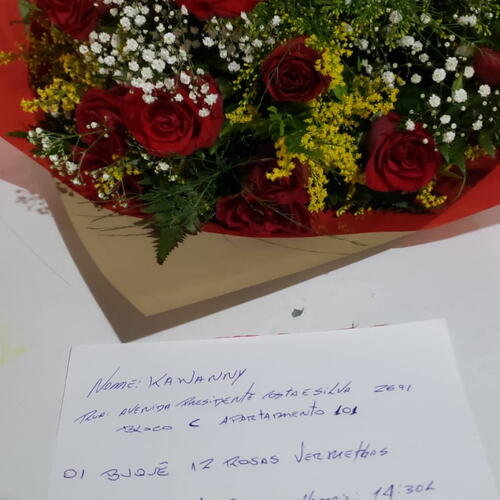 NOME: KAWANNY
RUA: AVENIDA PRESIDENTE COSTA E SILVA 2691
BLOCO C APARTAMENTO 101
01 BUQUÊ 12 ROSAS VERMELHAS
14:30h